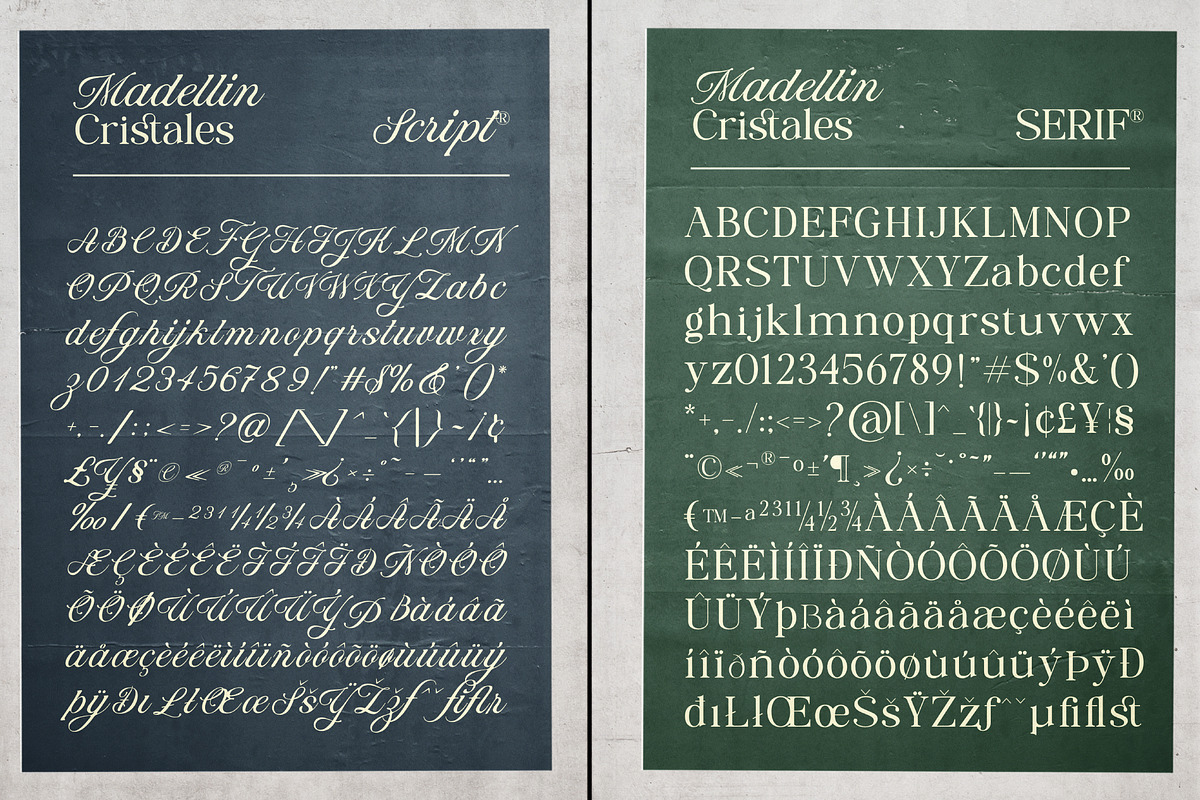 Madellin
Cristales
Script®
ABCDEFGHIJKLMN
OPQRSTUVWXYZabc
defghijklmnopqrstuvwxy
z0123456789!"#$%&'()*
+,-./:;<=>?@[\]^_`{|}~¡¢
£¥§¨©«®¯°±´¸»¿×÷˚˜–—‘’“”…
‰/€™−231¼½¾ÀÁÂÃÄÅ
ÆÇÈÉÊËÌÍÎÏÐÑÒÓÔ
ÕÖØÙÚÛÜÝÞßàáâã
äåæçèéêëìíîïñòóôõöøùúûüý
þÿĐıŁłŒœŠšŸŽžƒˆˇfiflr
Madellin
Cristales
SERIF®
ABCDEFGHIJKLMNOP
QRSTUVWXYZabcdef
ghijklmnopqrstuvwx
yz0123456789!"#$%&'()
*+,-./:;<=>?@[\]^_`{|}~¡¢£¥¦§
¨©«¬®¯°±´¶¸»¿×÷˘˙˚˜˝–—‘’“”•…‰
€™−ª2311¼½¾ÀÁÂÃÄÅÆÇÈ
ÉÊËÌÍÎÏÐÑÒÓÔÕÖØÙÚ
ÛÜÝþßàáâãäåæçèéêëì
íîïðñòóôõöøùúûüýÞÿĐ
đıŁłŒœŠšŸŽžƒˆˇµfiflst